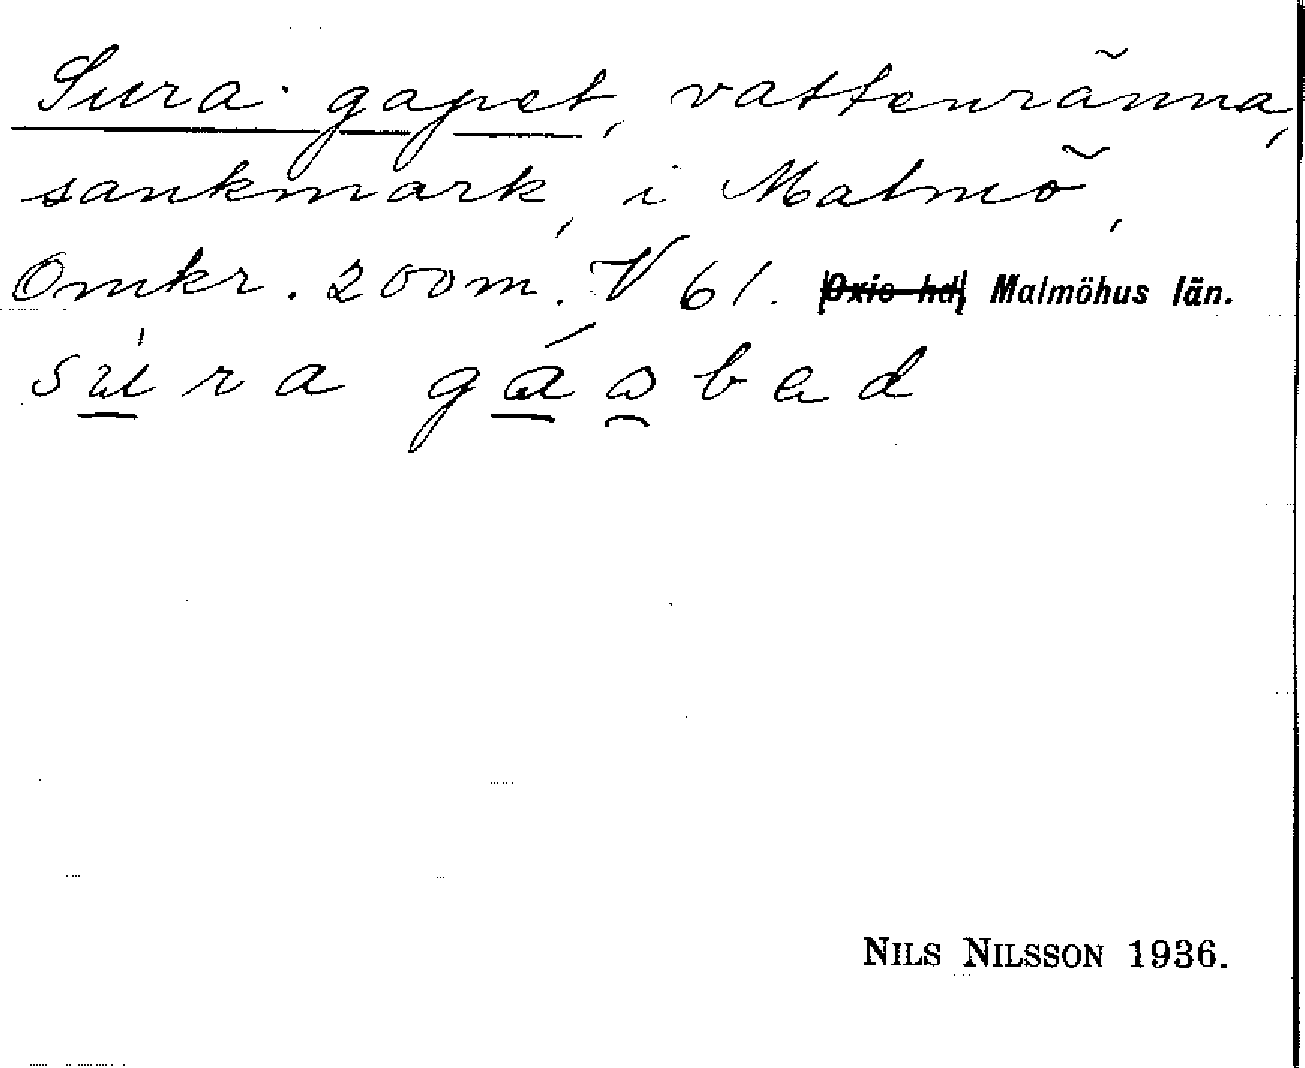 Sura gapet, vattenränna,
sankmark, i Malmö,
Omkr. 200m. V 61. Oxie hd, Malmöhus län.
NILS NILSSON 1936.